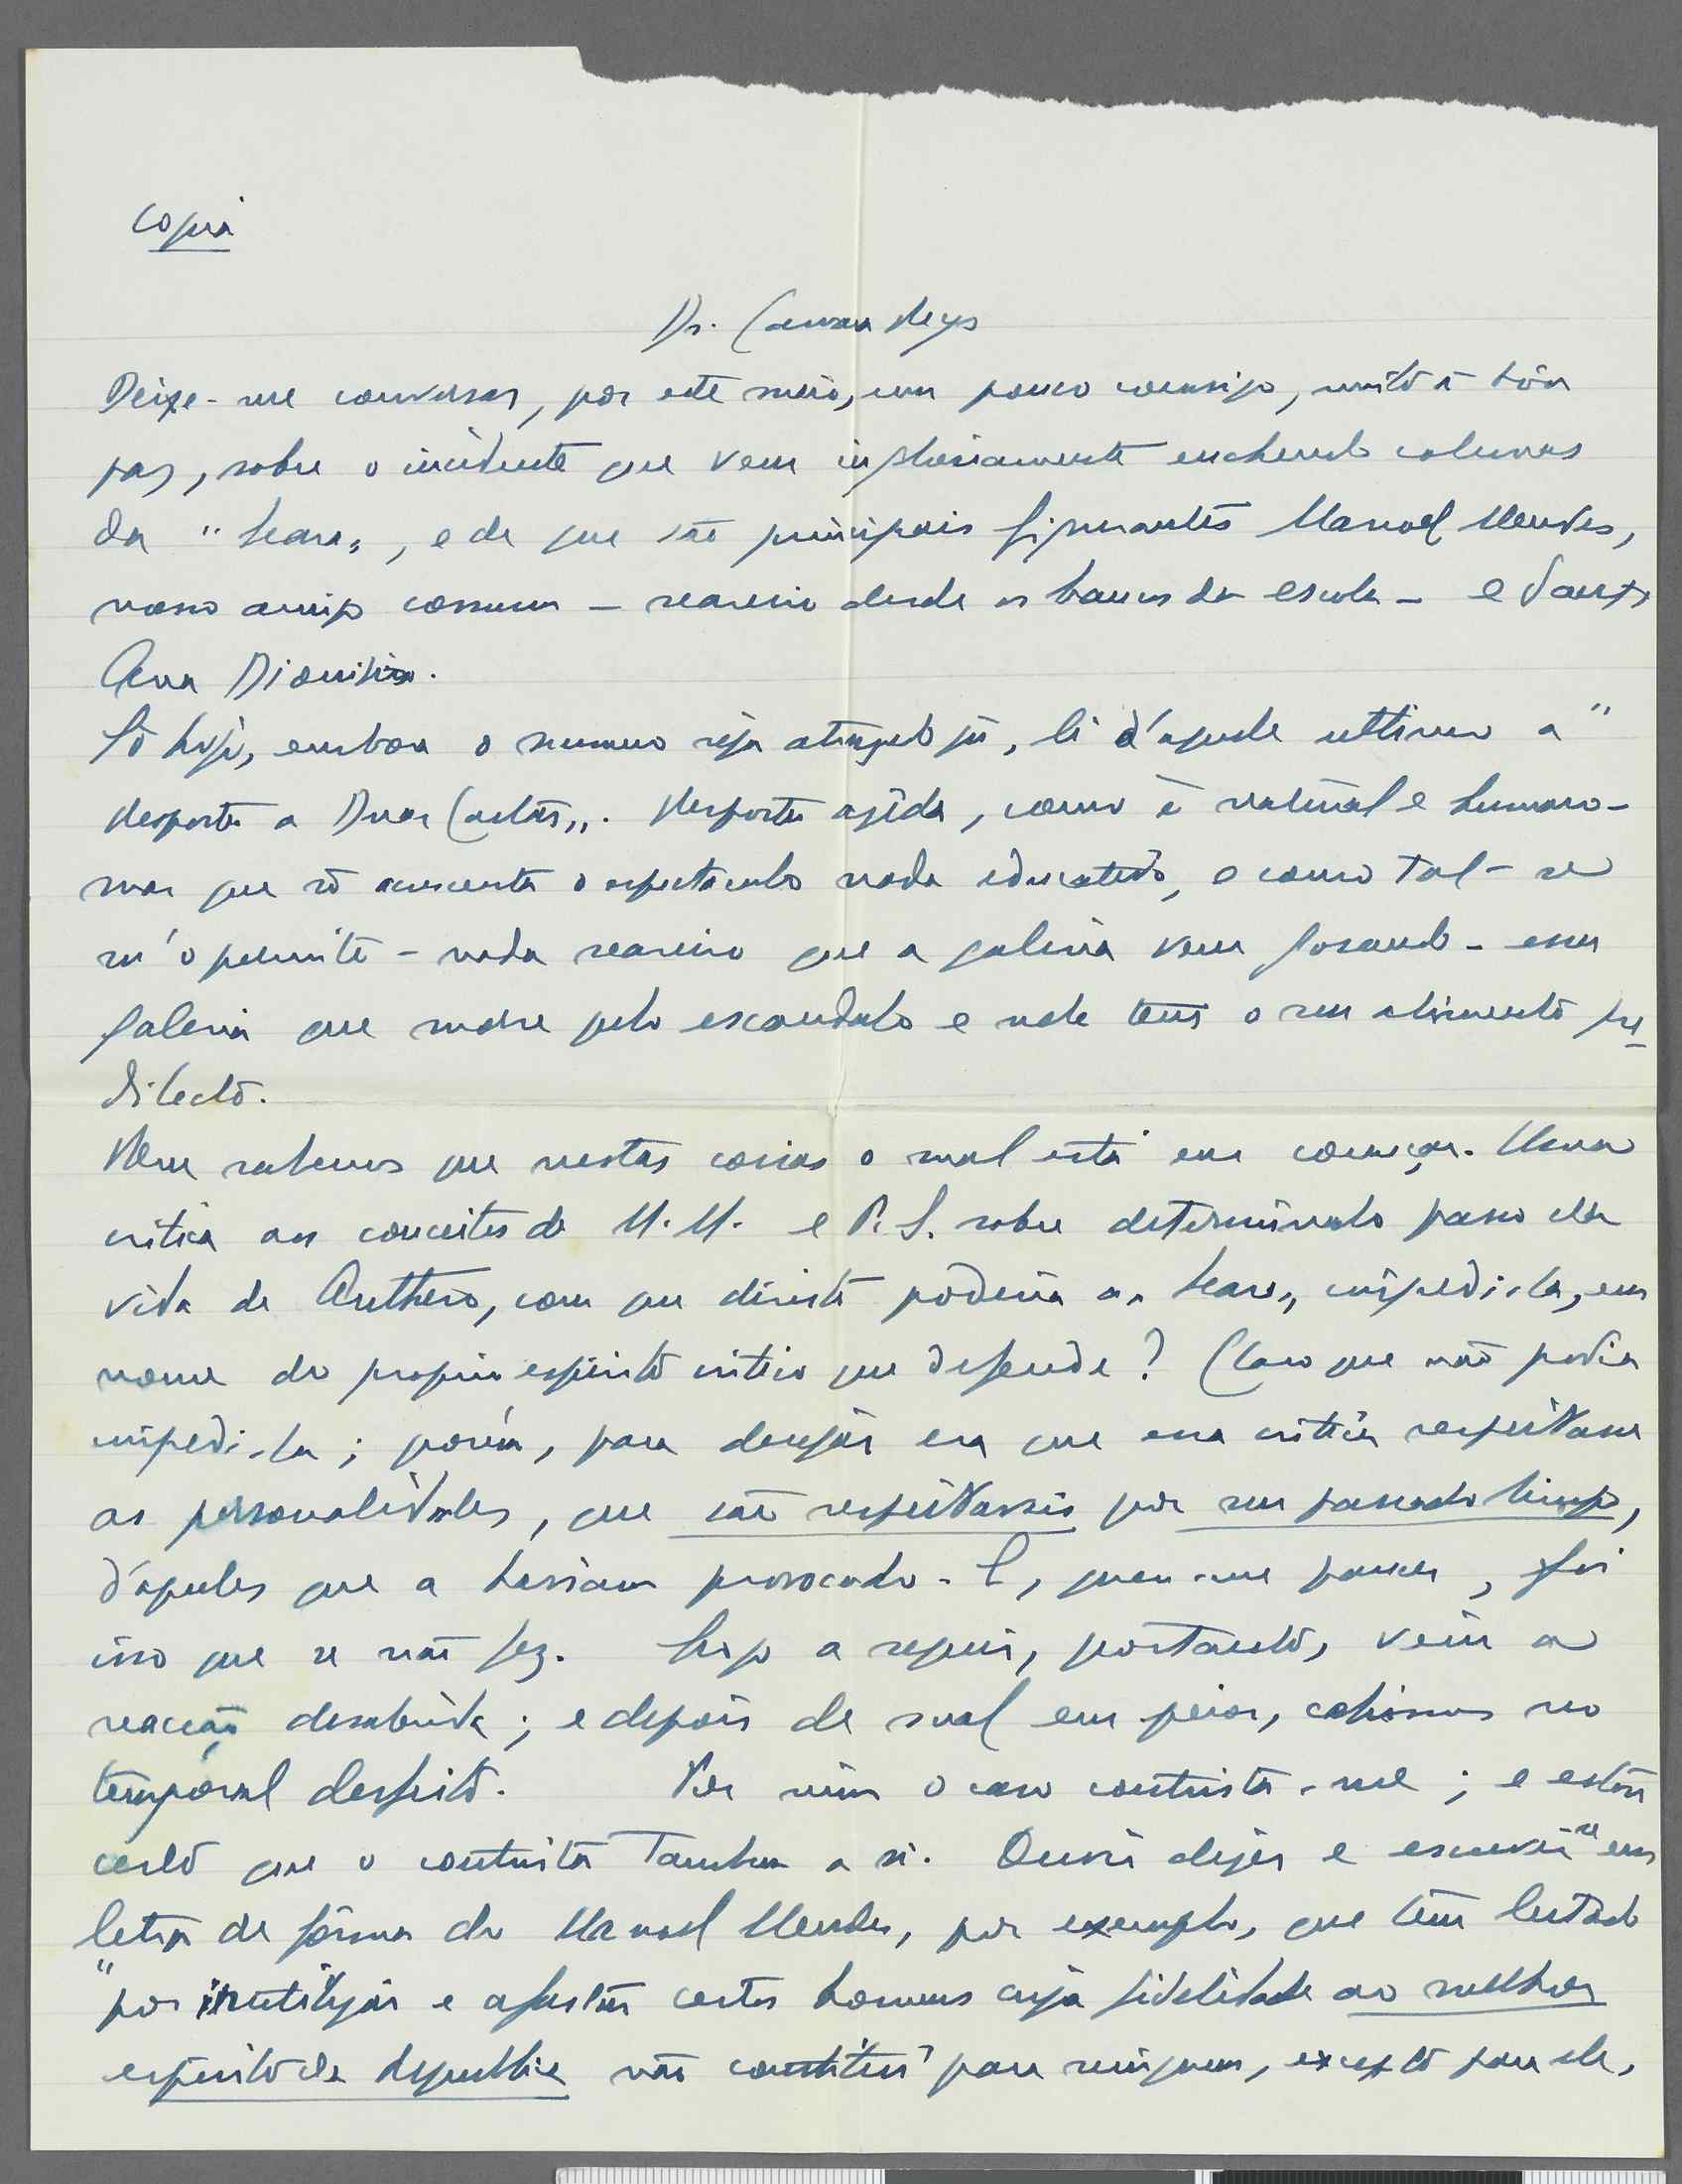 Copia
Dr. Camara Reys
Deixe-me conversar, por este meio, um pouco comsigo, muito á bôa
paz, sobre o incidente que vem ingloriamente enchendo colunas
da "Seara", e de que são principais figurantes Manoel Mendes,
nosso amigo comum - seareiro desde os bancos da escola - e Sant'
Anna Dionisio.
Só hoje, embora o numero seja atrazado já, li d'aquele ultimo a "
Resposta a Duas Cartas". Resposta azêda, como é natural e humano -
mas que só acrescenta o espectaculo nada educativo, e como tal - se
m'o permite - nada seareiro que a galeria vem gosando - essa
galeria que morre pelo escandalo e nele tem o seu alimento pre
dilecto.
Bem sabemos que nestas coisas o mal está em começar. Uma
critica aos conceitos de M. M. e P. S. sobre determinado passo da
vida de Anthero, com que direito poderia a "Seara" impedi-la, em
nome do proprio espirito critico que defende? Claro que não podia
impedi-la; porém, para desejar era que essa critica respeitasse
as personalidades, que são respeitaveis por seu passado limpo,
d'aqueles que a haviam provocado. E, quer-me parecer, foi
isso que se não fez. Logo a seguir, portanto, veiu a
reacção desabrida; e depois de mal em peior, cahimos no
temporal desfeito. Por mim o caso contrista-me; e estou
certo que o contrista tambem a si. Ouvir dizer e escrever-se em
letra de fôrma do Manoel Mendes, por exemplo, que têm lutado
"por inutilizar e afastar certos homens cuja fidelidade ao melhor
espirito da Republica não constitui para ninguem, excepto para ele,